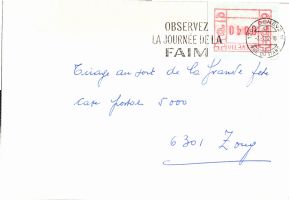 OBSERVEZ
LA JOURNÉE DE LA
FAIM
0500
HELVETIA
Tirage au sort de la grande fête
case postale 5000
6301 Zoug